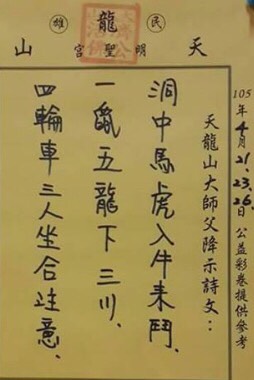 民龍雄
天明聖宮山
105年4月21.23.26.日公益彩卷提供參考
天龍山大師父降示詩文：
洞中馬虎入牛來鬥、
一鼠五龍下三川、
四輪車三人坐合注意、